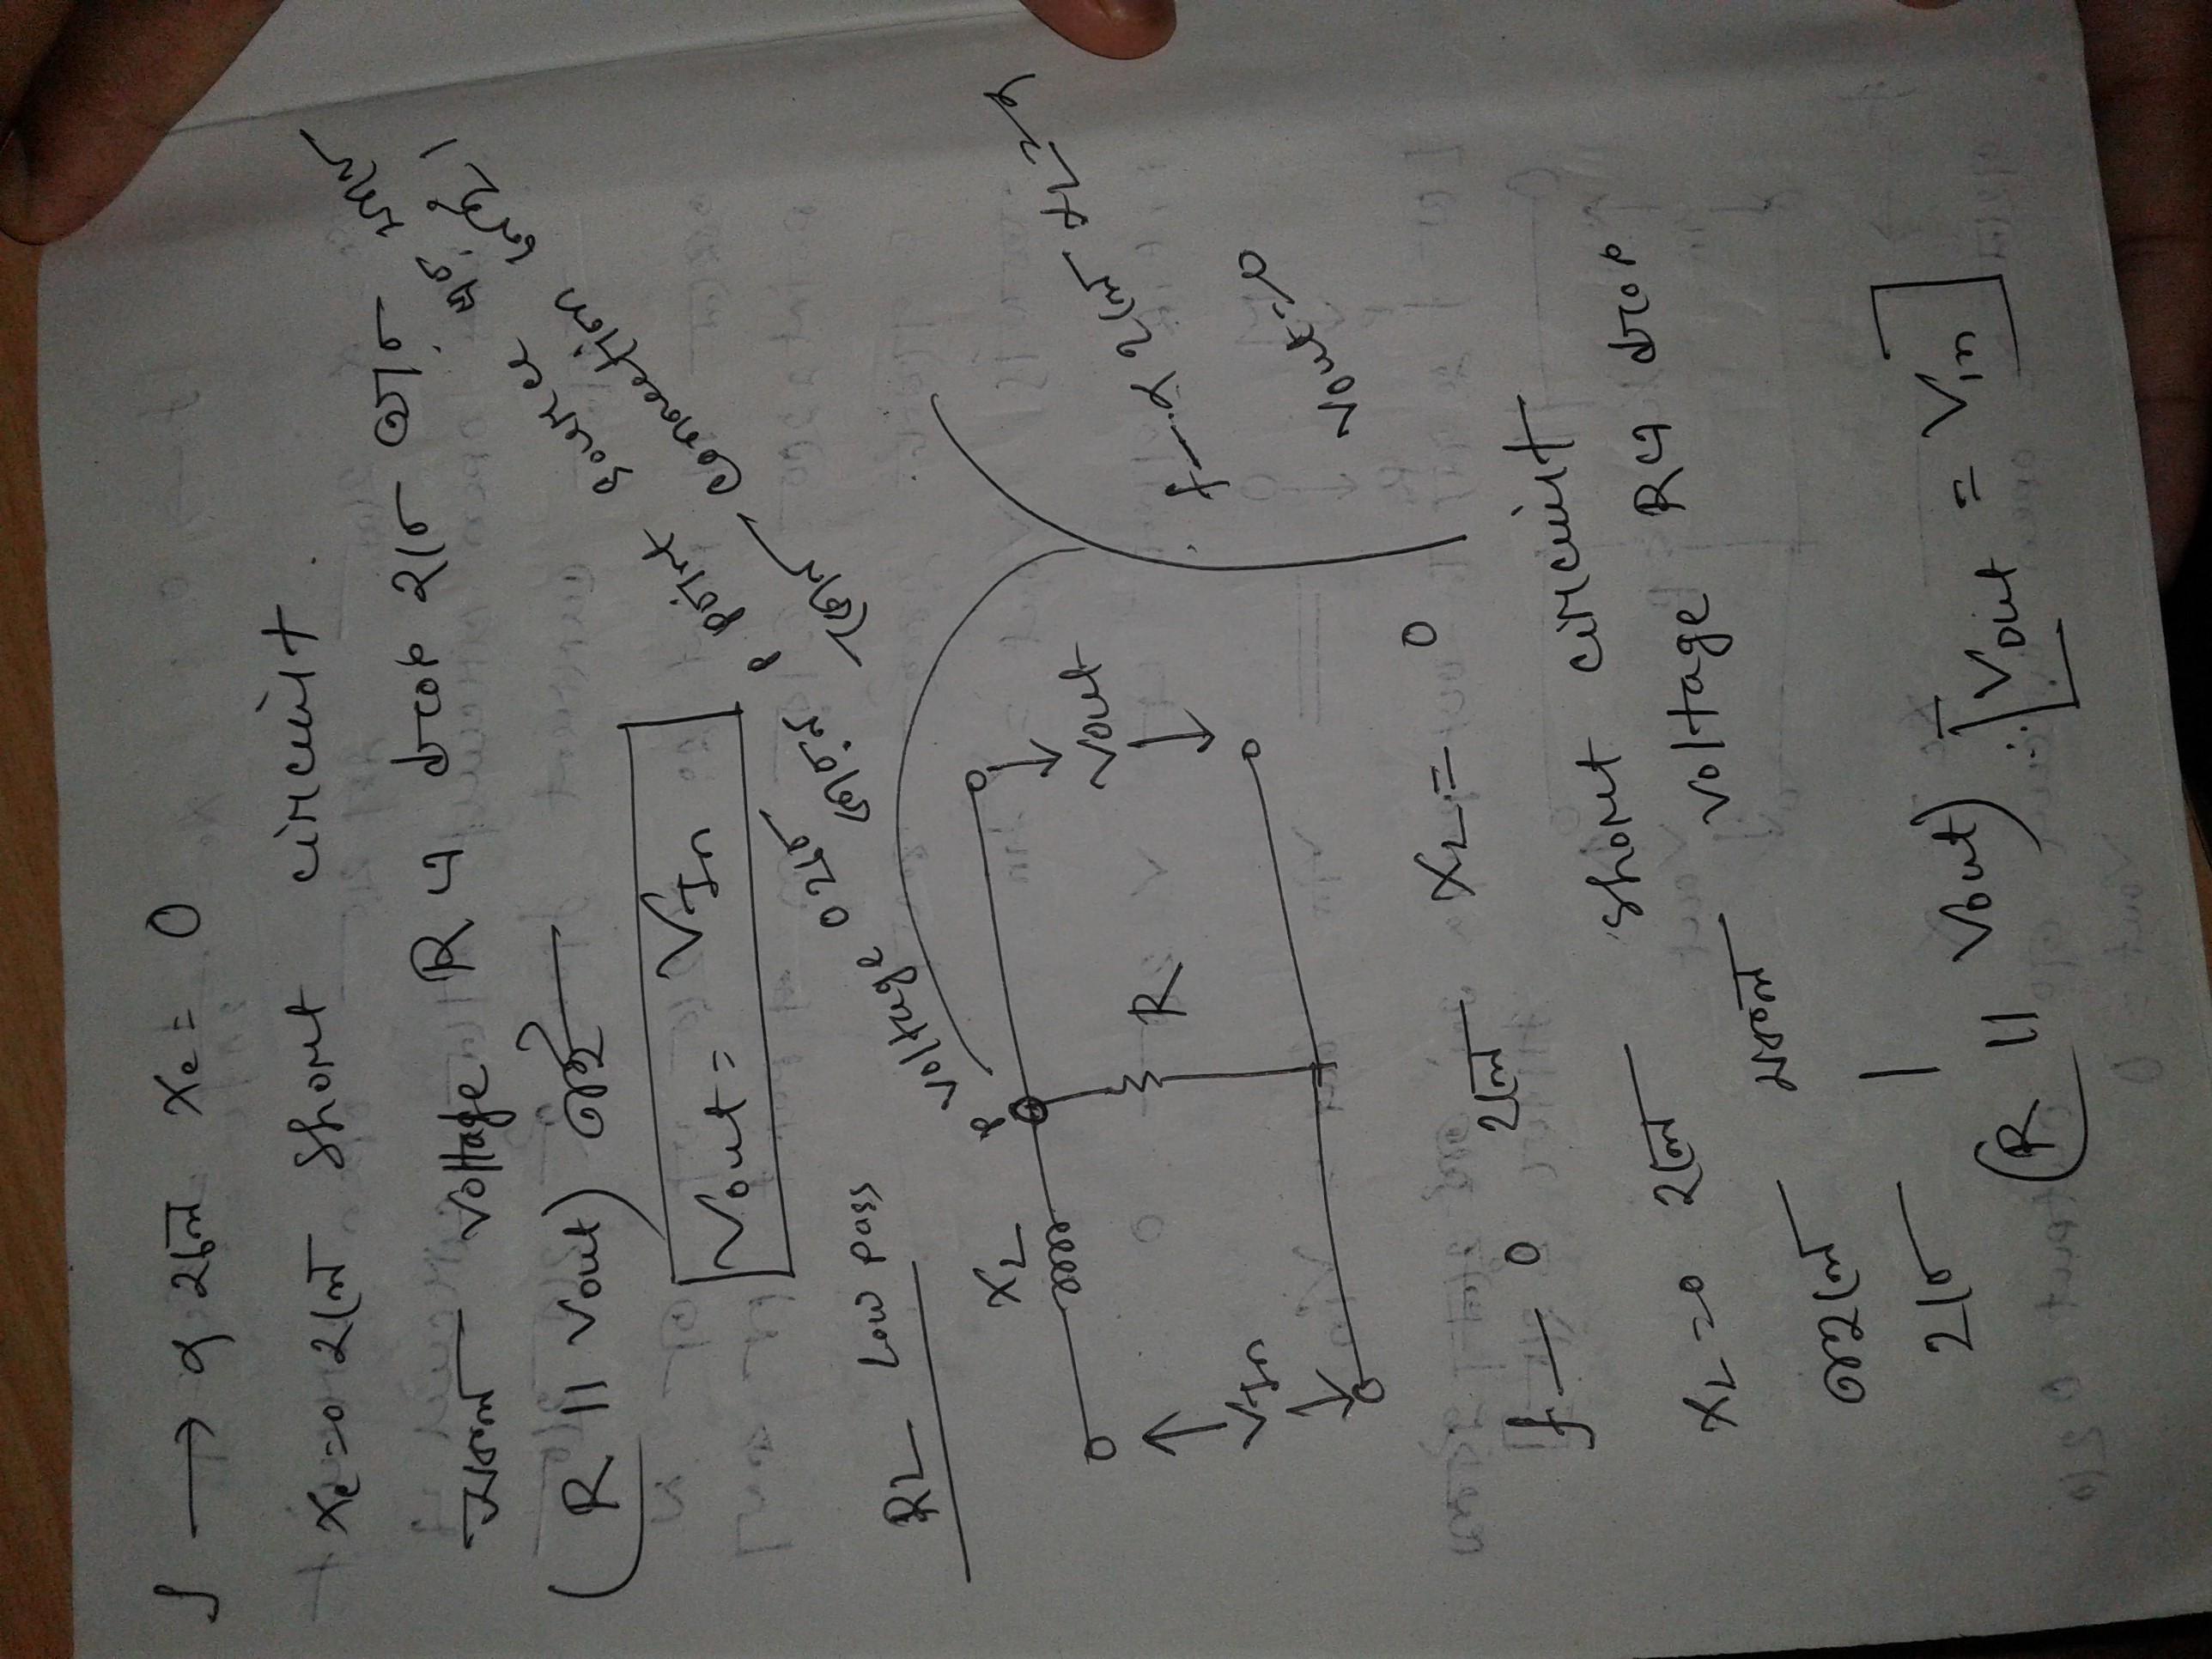 f → α হলে Xc = 0
Xc = 0 হলে short circuit.
সকল voltage R এ drop হবে আর
(R || Vout) তাই
Vout = VIn
RL Low pass
P voltage 0 হবে
কারন P point source এর সাথে
কোন connection নেই।
XL
P
R
Vout
VIn
f → α হলে XL = α
Vout = 0
f → 0 হলে XL = 0
XL = 0 হলে short circuit
তাহলে সকল voltage R এ drop
হবে।
(R || Vout) ∴ [Vout = Vin]